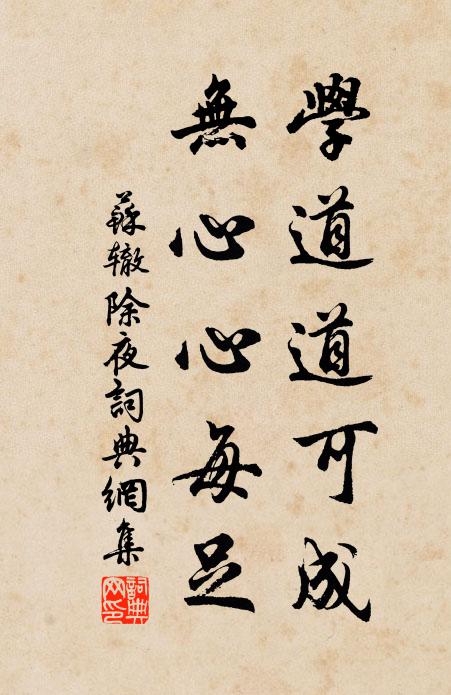 學道道可成
無心心每足
蘇辙除夜詞典網集
詞典
网印